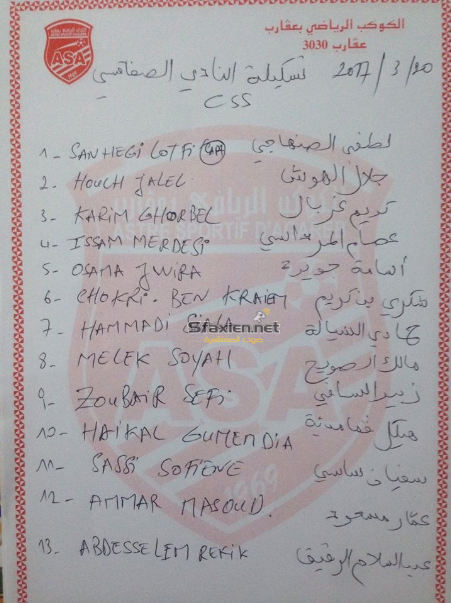 الكوكب الرياضي بعقارب
عقارب 3030
ASA
تشكيلة النادي الصفاقسي 2017/3/20
CSS
1- SANHEGI LOTFI CAP لطفي الصنهاجي
2- HOUCH JALEL جلال الهوش
3- KARIM GHORBEL كريم غربال
4- ISSAM MERDESI عصام المرداسي
5- OSAMA JWIRA أسامة جويرة
6- CHOKRI. BEN KRAIEM شكري بن كريم
7- HAMMADI حمادي السيالة
Sfaxien.net
8- MELEK SOYAH مالك الصويح
9- ZOUBAIR SEFI زبير السافي
10- HAIKAL GUMENDIA هيكل قمامدية
11- SASSI SOFIENE سفيان ساسي
12- AMMAR MASOUD. عمار مسعود
13- ABDESSELEM REKIK عبد السلام الرقيق
ASA
1969